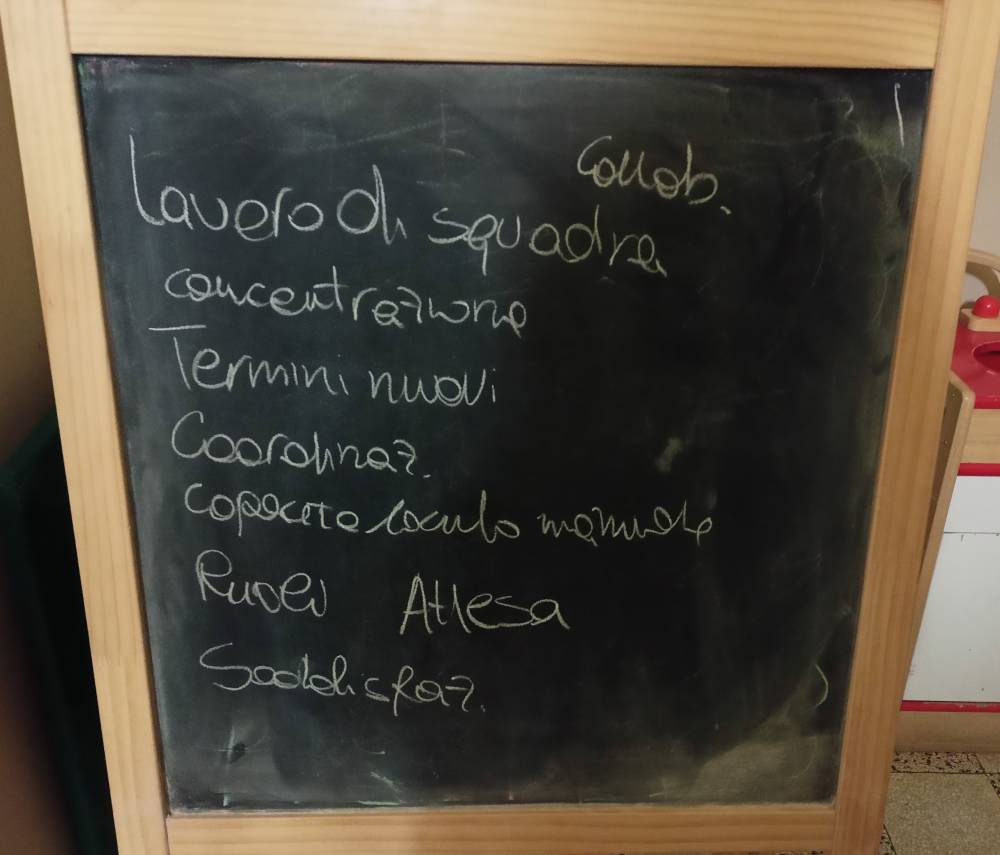 Collab.
Lavoro di squadra
concentrazione
Termini nuovi
Coordinaz.
capacità oculo manuale
Ruoli Attesa
Soddisfaz.